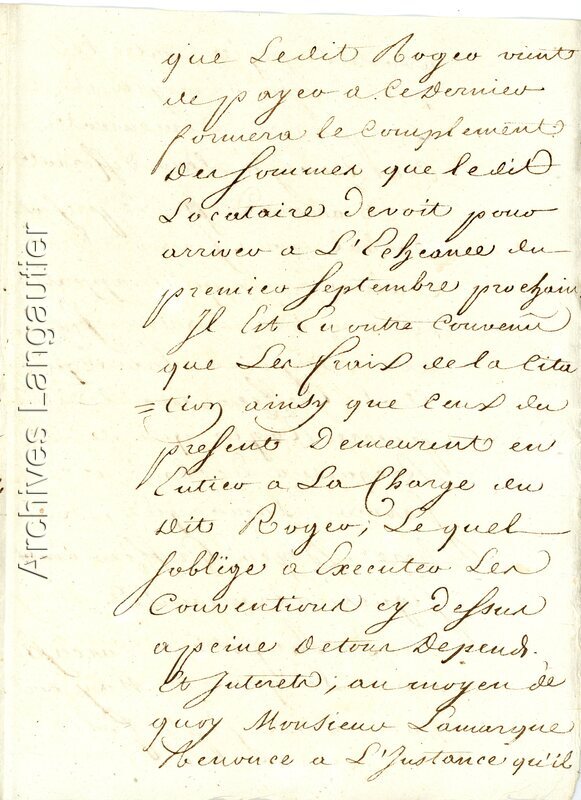 que Ledit Roger vient
de payer a ce Dernier
formera le Complement
des sommes que ledit
Locataire devoit pour
arriver a L'Echeance du
premier septembre prochain
Il Est En outre Convenu
que Les fraix de la Cita
=tion ainsy que Ceux du
present Demeurent en
Entier a La Charge du
dit Roger, Lequel
soblige a Executer Les
Conventions cy dessus
a peine de tous Depends.
Et Interets ; au moyen de
quoy Monsieur Lamarque
Renonce a L'Instance qu'il
Archives Langautier